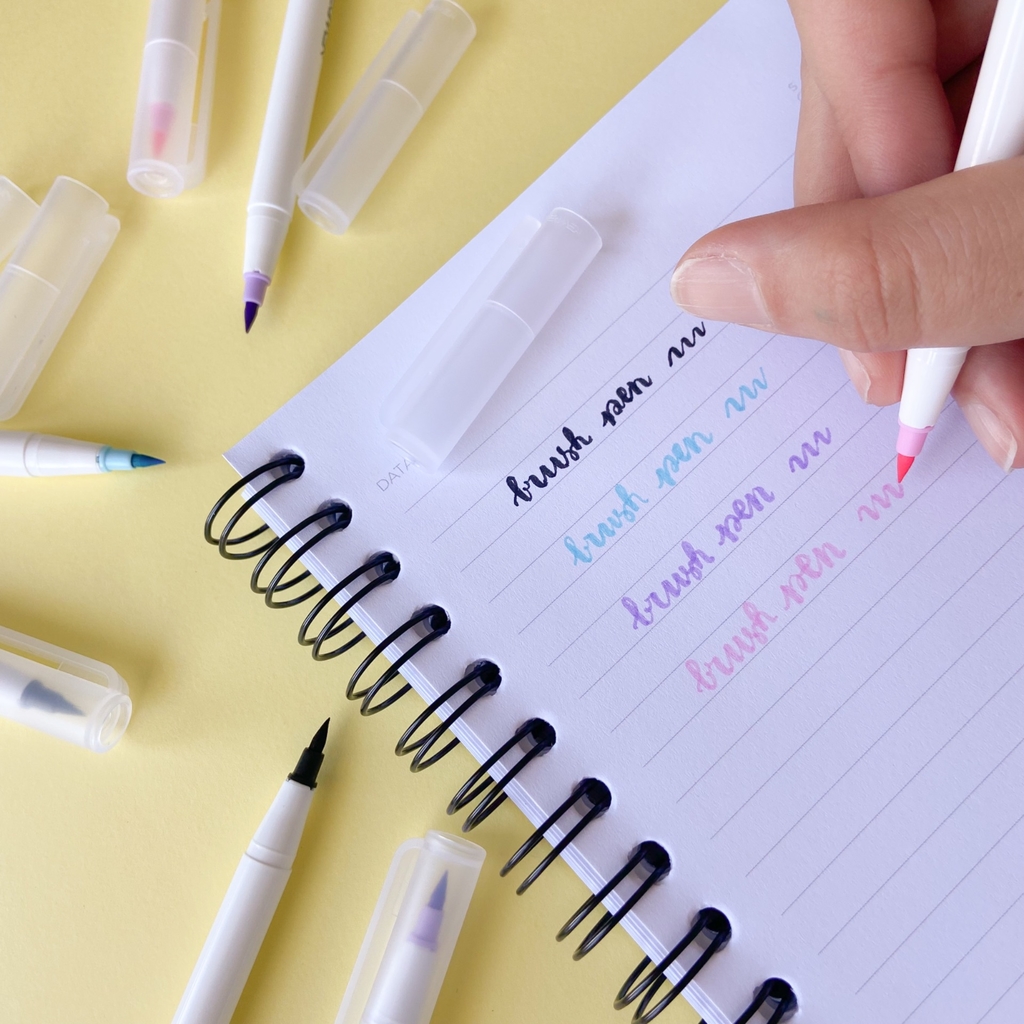 DATA
brush pen
brush pen
brush pen
brush pen